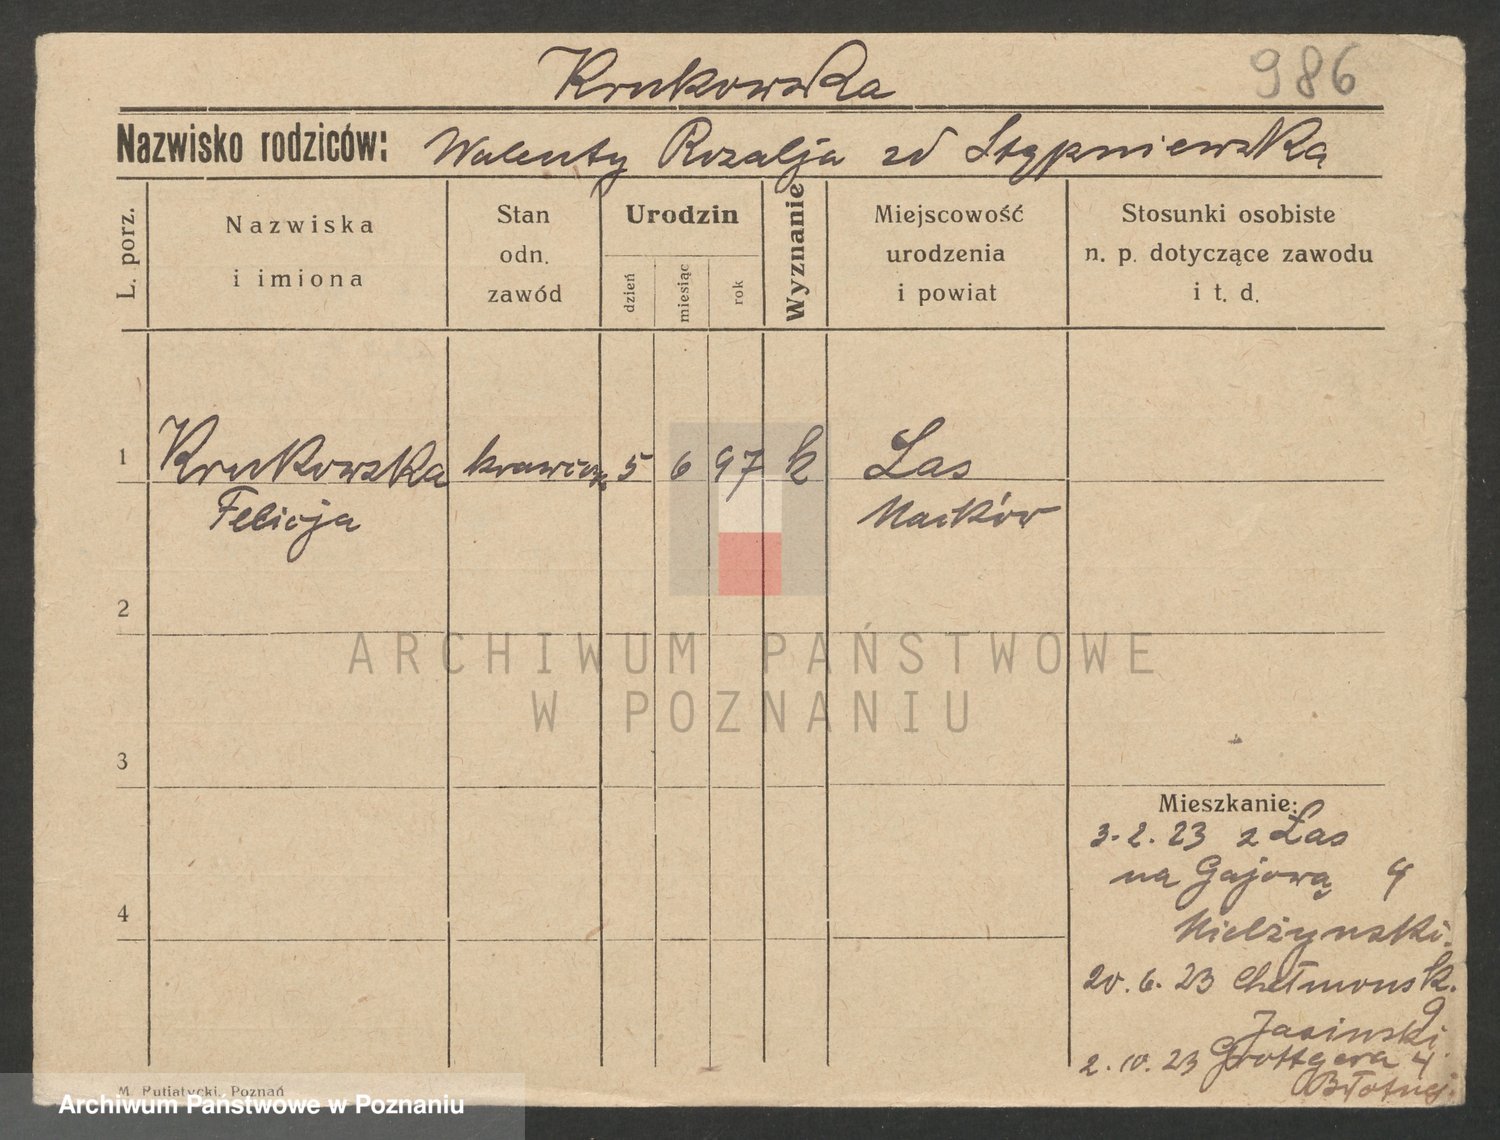 Krukowska
986
Nazwisko rodziców: Walenty Rozalja zd Stypniewską
L. porz.
Nazwiska
i imiona
Stan
odn.
zawód
Urodzin
dzień
miesiąc
rok
Wyznanie
Miejscowość
urodzenia
i powiat
Stosunki osobiste
n. p. dotyczące zawodu
i t. d.
1 Krukowska 5 6 97 k Las
Felicja Maków
2
3
4
Mieszkanie:
3.2.23 z Las
na Gajową 4
Mielżynski.
20.6.23 Chełmonsk.
9
Jasinski
2.10.23 Grottgera 4
Błotnej.
M. Putiatycki, Poznań
ARCHIWUM PAŃSTWOWE
W POZNANIU
Archiwum Państwowe w Poznaniu